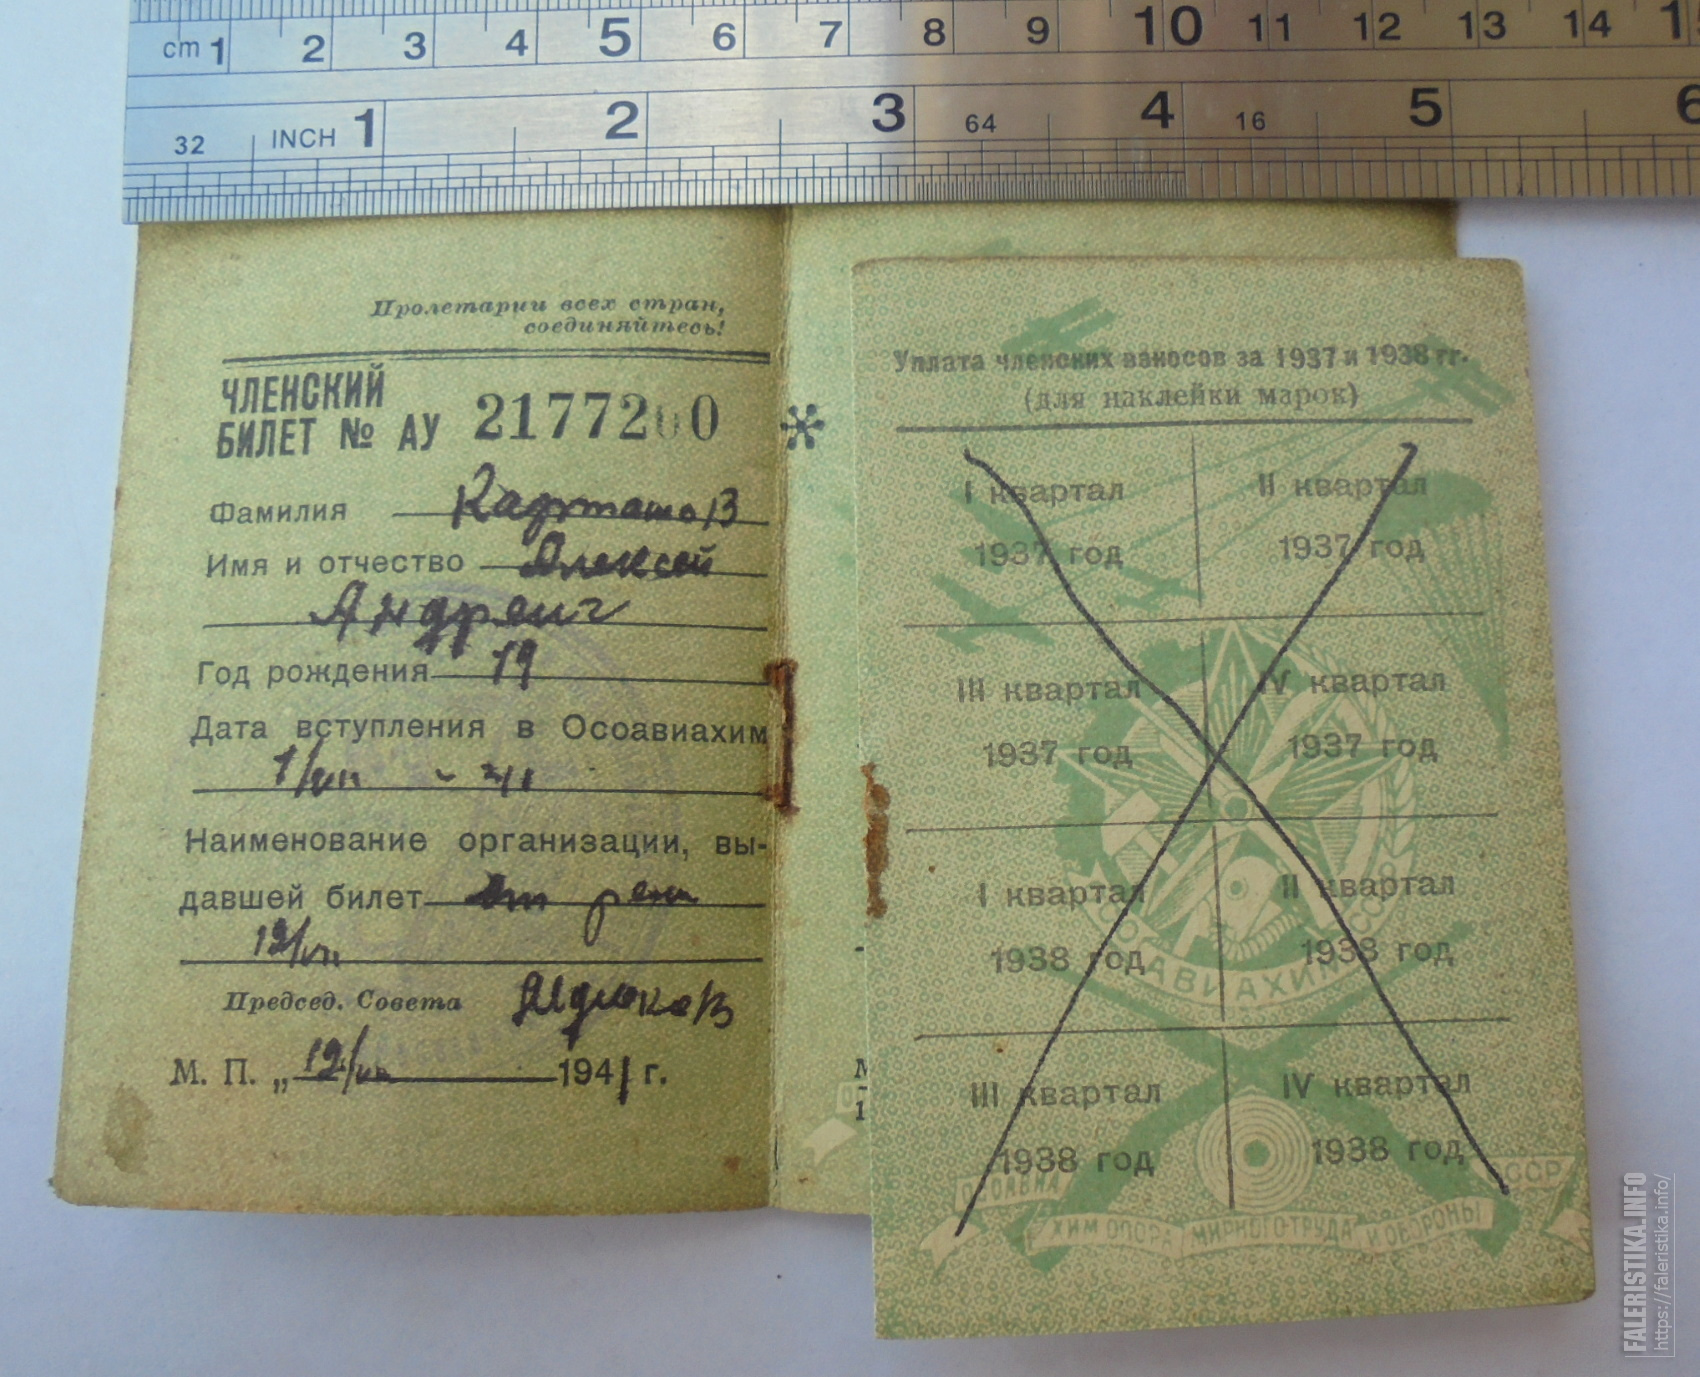 cm 1 2 3 4 5 6 7 8 9 10 11 12 13 14
32 INCH 1 2 3 64 4 16 5 6
Пролетарии всех стран,
соединяйтесь!
ЧЛЕНСКИЙ
БИЛЕТ № АУ 2177200
Фамилия
Имя и отчество Алексей
Год рождения 19
Дата вступления в Осоавиахим
Наименование организации, вы-
давшей билет
12/VII
Председ. Совета
М. П. „ 12/VII 1941 г.
Уплата членских взносов за 1937 и 1938 гг.
(для наклейки марок)
I квартал II квартал
1937 год 1937 год
III квартал IV квартал
1937 год 1937 год
I квартал II квартал
1938 год 1938 год
ОСОАВИАХИМ СССР
III квартал IV квартал
1938 год 1938 год
ОСОАВИА
ХИМ ОПОРА МИРНОГО ТРУДА И ОБОРОНЫ СССР
FALERISTIKA.INFO
https://faleristika.info/